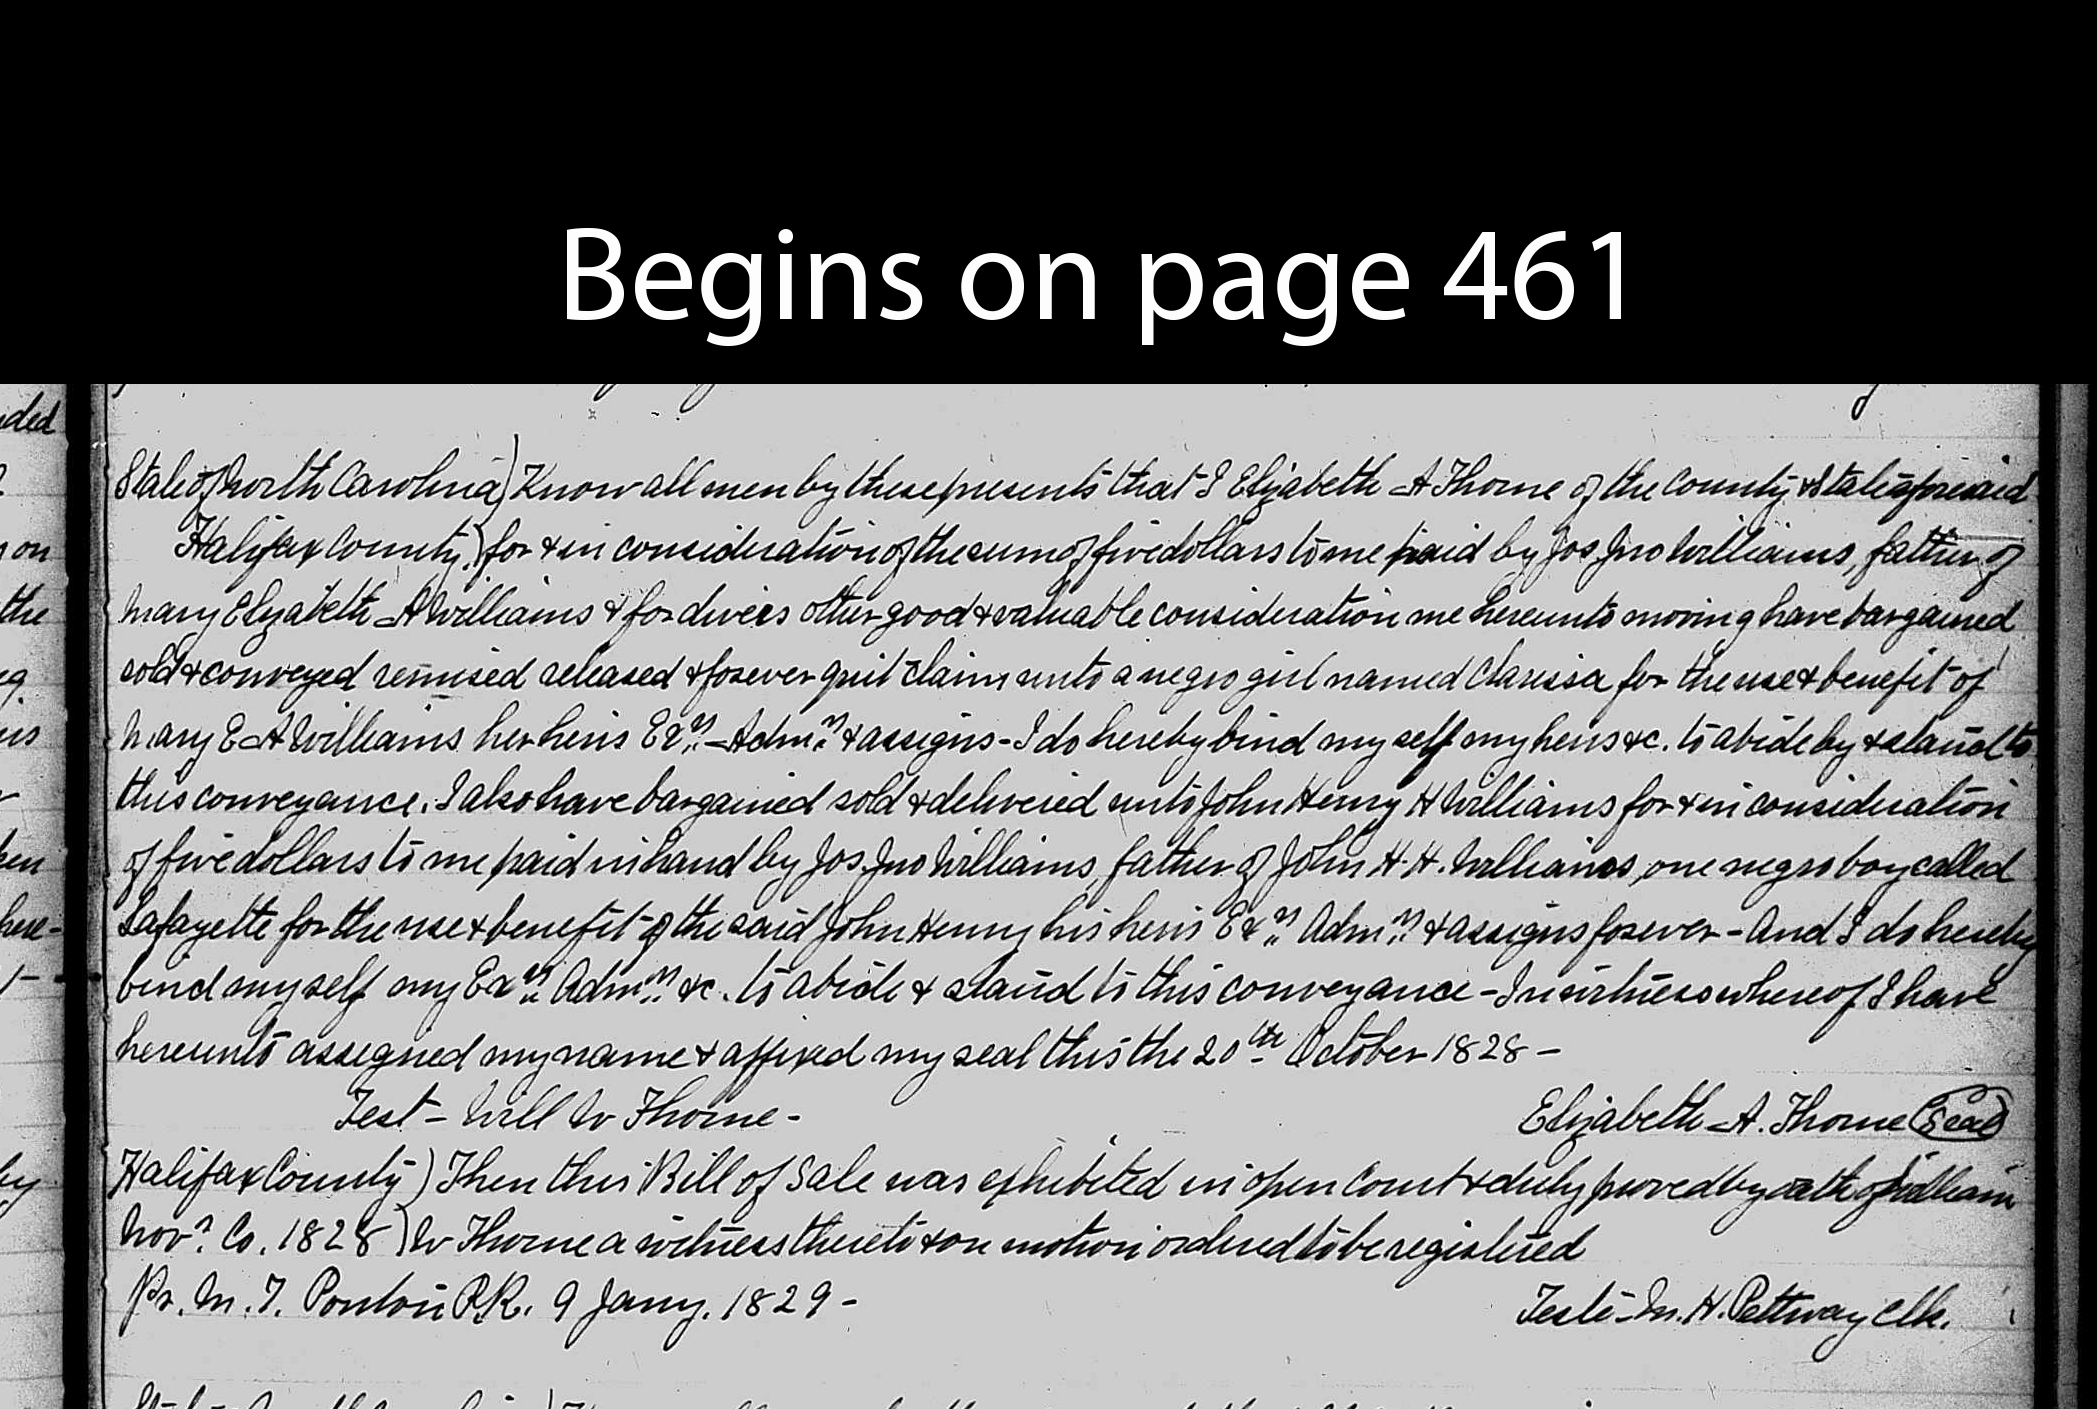 Begins on page 461
ded
State of North Carolina) Know all men by these presents that I Elizabeth A Thorne of the County & State aforesaid
on
Halifax County.) for & in consideration of the sum of five dollars to me paid by Jos. Jno Williams, father of
the
Mary Elizabeth A Williams & for divers other good & valuable consideration me hereunto moving have bargained
sold & conveyed remised released & forever quit claim unto a negro girl named Clarissa for the use & benefit of
Mary E A Williams her heirs Exrs. Admrs. & assigns - I do hereby bind my self my heirs &c. to abide by & stand to
this conveyance. I also have bargained sold & delivered unto John Henry H Williams for & in consideration
of five dollars to me paid in hand by Jos. Jno Williams, father of John H. H. Williams, one negro boy called
here-
Lafayette for the use & benefit of the said John Henry his heirs Exrs. Admrs. & assigns forever - And I do hereby
bind myself my Exrs. Admrs. &c. to abide & stand to this conveyance - In witness whereof I have
hereunto assigned my name & affixed my seal this the 20th October 1828 -
Test - Will W Thorne - Elizabeth A. Thorne (Seal)
by
Halifax County) Then this Bill of Sale was exhibited in open Court & duly proved by oath of William
Novr. Co. 1828) W Thorne a witness thereto & on motion ordered to be registered
Pr. M. T. Ponton P.R. 9 Jany. 1829 - Teste - M. H. Pettway Clk.